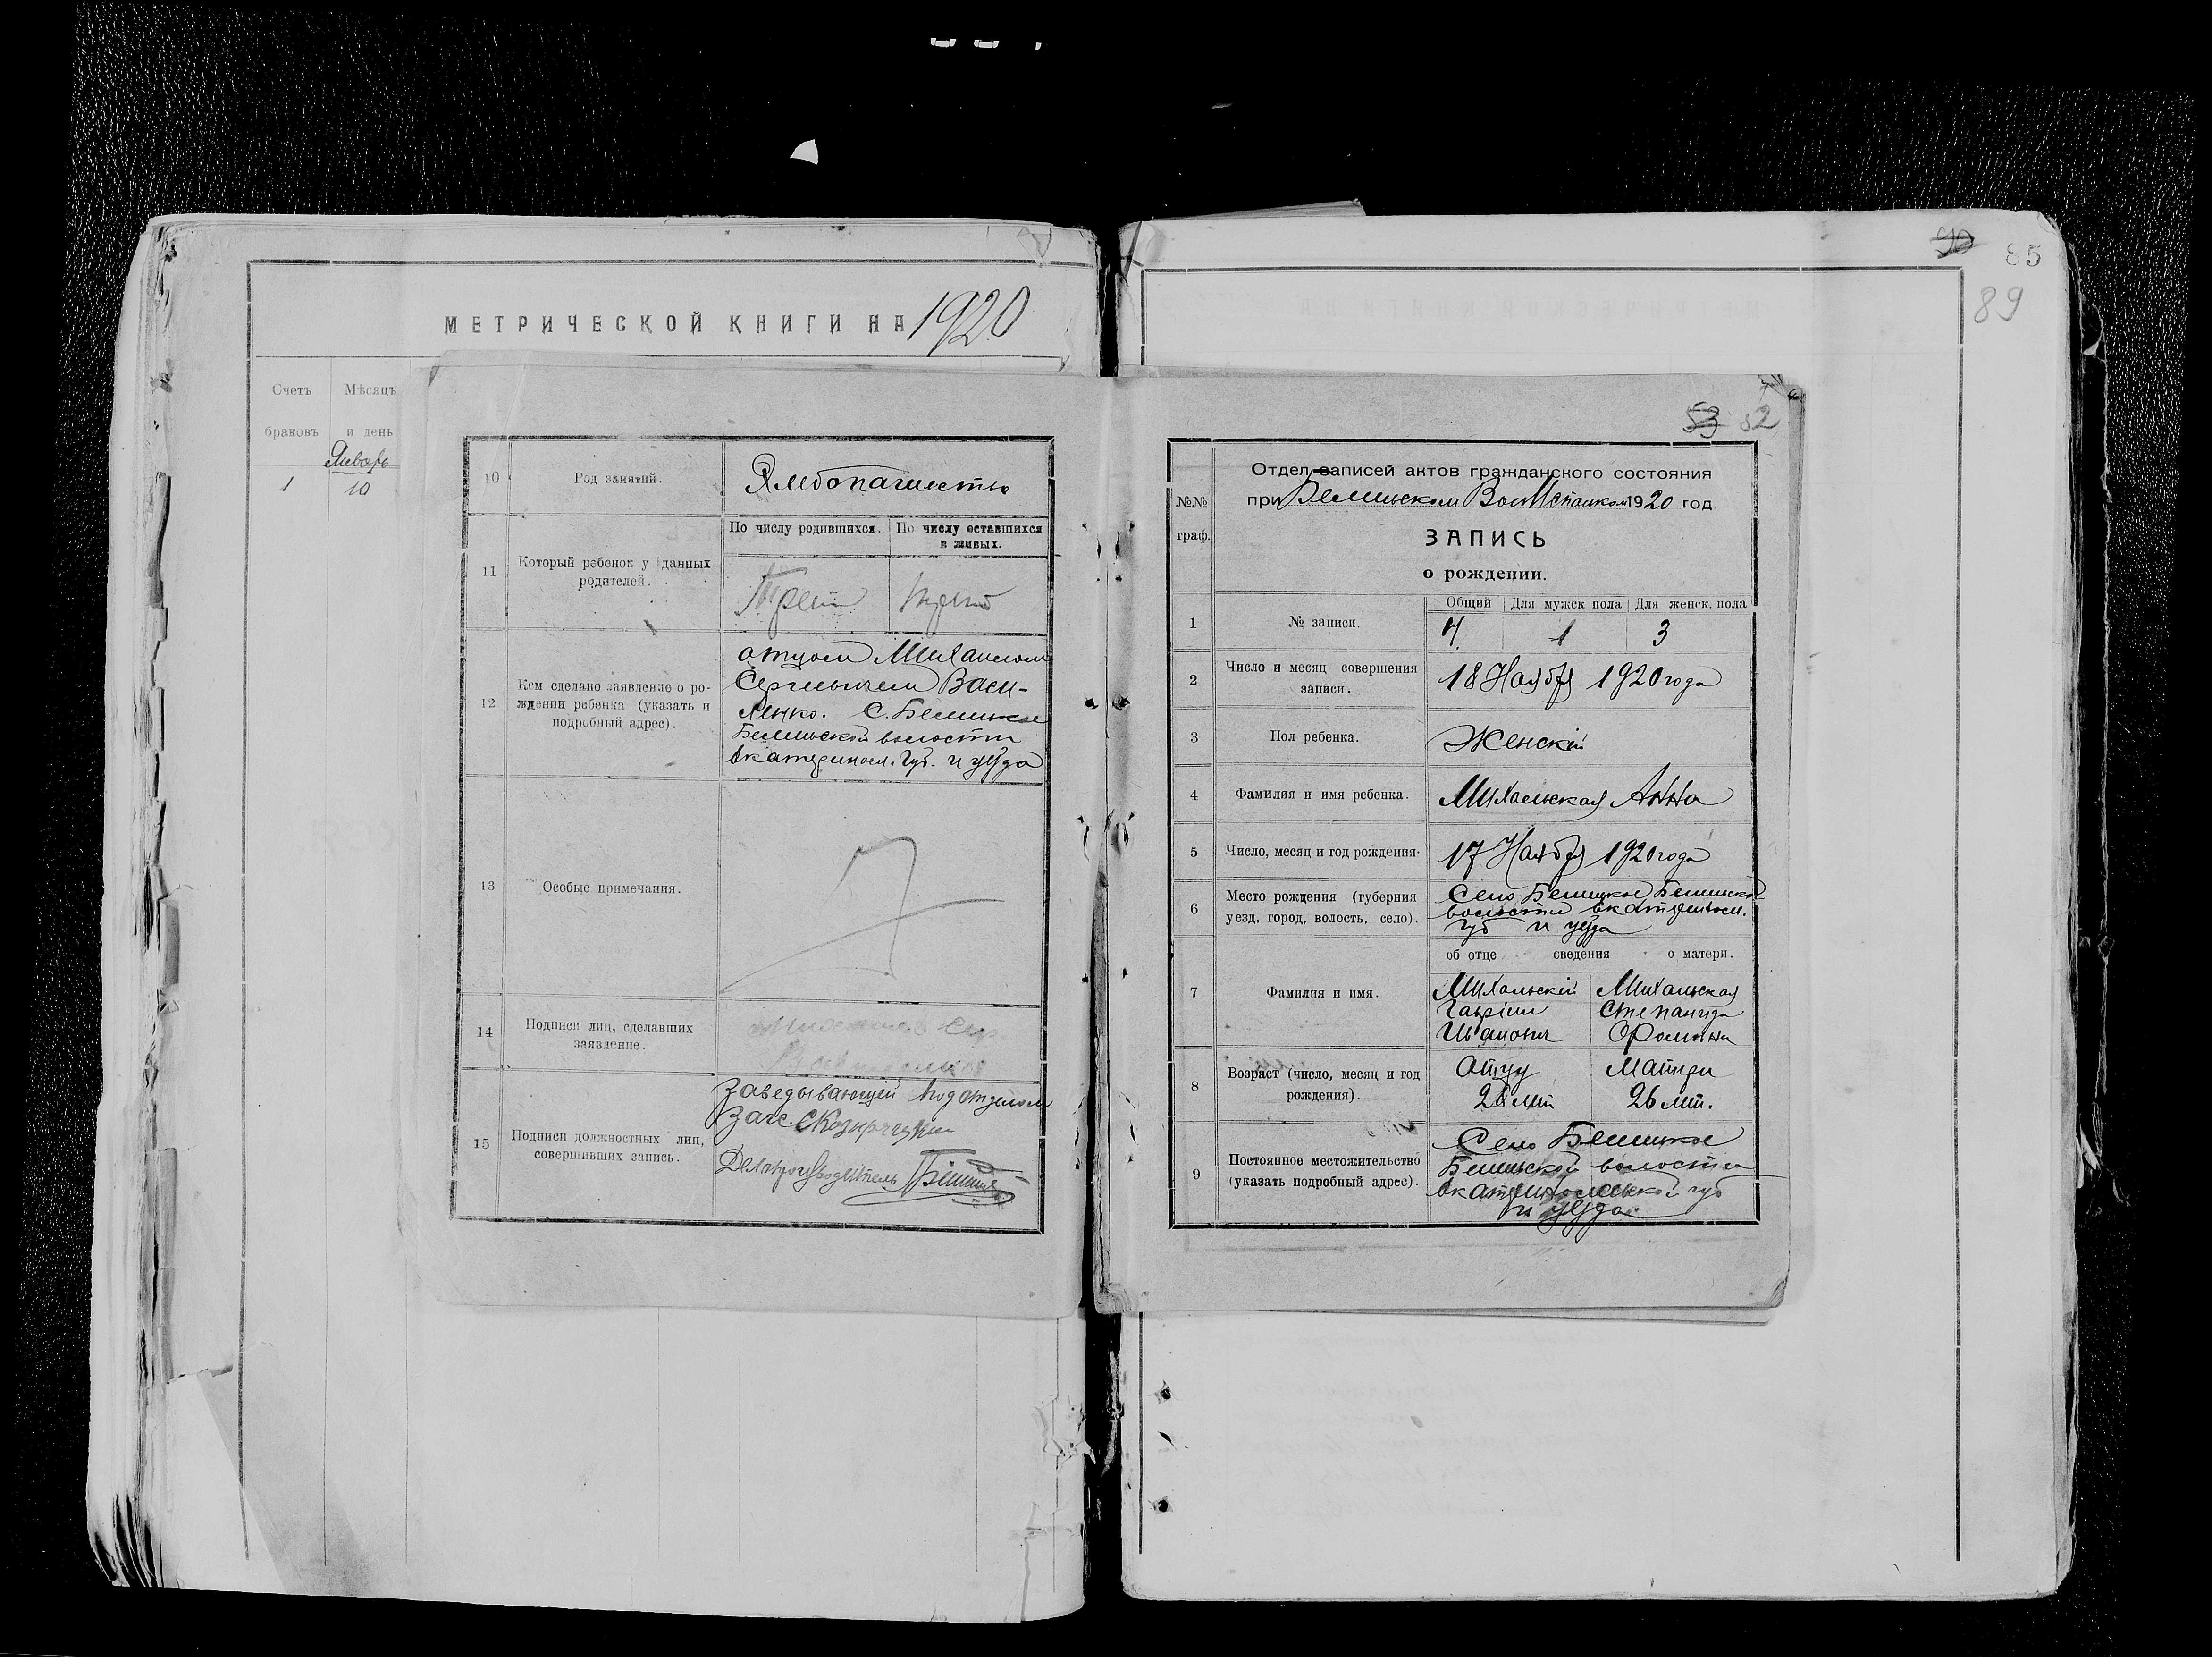 МЕТРИЧЕСКОЙ КНИГИ НА 1920
Счетъ
браковъ
Мѣсяцъ
и день
Январь
1
10
10
Род занятий.
Хлебопашество
11
Который ребенок у данных
родителей.
По числу родившихся.
По числу оставшихся
в живых.
Трети
12
Кем сделано заявление о ро-
ждении ребенка (указать и
подробный адрес).
отцом Михаилом
Сергеевичем Васи-
ленко. С.
волости
Екатериносл. губ. и уезда
13
Особые примечания.
14
Подписи лиц, сделавших
заявление.
15
Подписи должностных лиц,
совершивших запись.
Заведывающей подотделом
Загс
Делопроизводитель
90 85
89
53 52
№№
граф.
Отдел записей актов гражданского состояния
при 1920 год
ЗАПИСЬ
о рождении.
1
№ записи.
Общий
Для мужск пола
Для женск. пола
4
1
3
2
Число и месяц совершения
записи.
18 Ноября 1920 года
3
Пол ребенка.
Женскій
4
Фамилия и имя ребенка.
Михальская Анна
5
Число, месяц и год рождения.
17 Ноября 1920 года
6
Место рождения (губерния
уезд, город, волость, село).
Село
волости Екатериносл.
губ и уезда
7
Фамилия и имя.
об отце сведения о матери.
Михальскій
Гавріил
Иванович
Михальская
Степанида
8
Возраст (число, месяц и год
рождения).
Отцу
28 лет
Матери
26 лет.
9
Постоянное местожительство
(указать подробный адрес).
Село
волости
Екатеринославской губ
и уезда